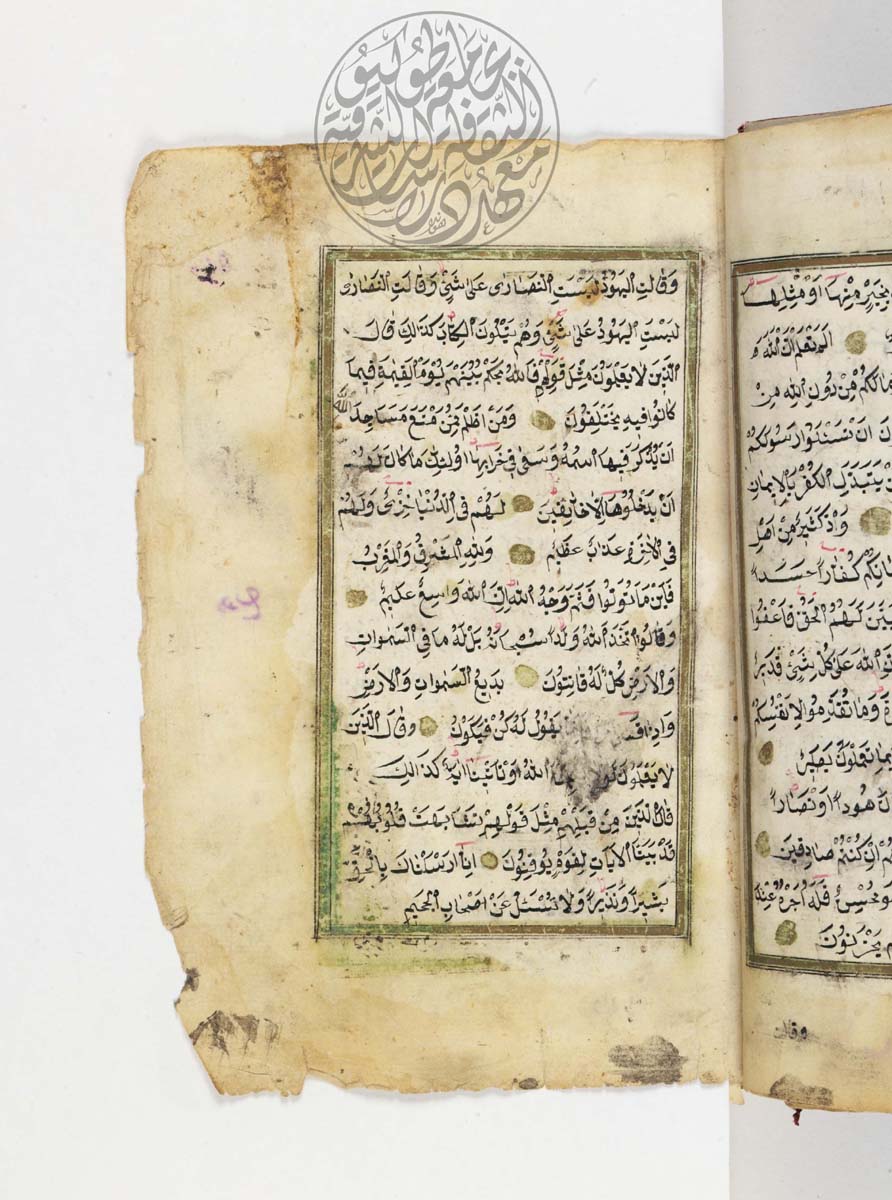 وَقَالَتِ الْيَهُودُ لَيْسَتِ النَّصَارَى عَلَى شَيْءٍ وَقَالَتِ النَّصَارَى
لَيْسَتِ الْيَهُودُ عَلَى شَيْءٍ وَهُمْ يَتْلُونَ الْكِتَابَ كَذَلِكَ قَالَ
الَّذِينَ لَا يَعْلَمُونَ مِثْلَ قَوْلِهِمْ فَاللَّهُ يَحْكُمُ بَيْنَهُمْ يَوْمَ الْقِيَمَةِ فِيمَا
كَانُوا فِيهِ يَخْتَلِفُونَ وَمَنْ أَظْلَمُ مِمَّنْ مَنَعَ مَسَاجِدَ اللَّهِ
أَنْ يُذْكَرَ فِيهَا اسْمُهُ وَسَعَى فِي خَرَابِهَا أُولَئِكَ مَا كَانَ لَهُمْ
أَنْ يَدْخُلُوهَا إِلَّا خَائِفِينَ لَهُمْ فِي الدُّنْيَا خِزْيٌ وَلَهُمْ
فِي الْآخِرَةِ عَذَابٌ عَظِيمٌ وَلِلَّهِ الْمَشْرِقُ وَالْمَغْرِبُ
فَأَيْنَ مَا تُوَلُّوا فَثَمَّ وَجْهُ اللَّهِ إِنَّ اللَّهَ وَاسِعٌ عَلِيمٌ
وَقَالُوا اتَّخَذَ اللَّهُ وَلَدًا سُبْحَانَهُ بَلْ لَهُ مَا فِي السَّمَوَاتِ
وَالْأَرْضِ كُلٌّ لَهُ قَانِتُونَ بَدِيعُ السَّمَوَاتِ وَالْأَرْضِ
وَإِذَا يَقُولُ لَهُ كُنْ فَيَكُونُ وَقَالَ الَّذِينَ
لَا يَعْلَمُونَ اللَّهُ أَوْ تَأْتِينَا آيَةٌ كَذَلِكَ
قَالَ الَّذِينَ مِنْ قَبْلِهِمْ مِثْلَ قَوْلِهِمْ تَشَابَهَتْ قُلُوبُهُمْ
قَدْ بَيَّنَّا الْآيَاتِ لِقَوْمٍ يُوقِنُونَ إِنَّا أَرْسَلْنَاكَ بِالْحَقِّ
بَشِيرًا وَنَذِيرًا وَلَا تُسْئَلُ عَنْ أَصْحَابِ الْجَحِيمِ
بِخَيْرٍ مِنْهَا أَوْ مِثْلِهَا
أَلَمْ تَعْلَمْ أَنَّ اللَّهَ
مَا لَكُمْ مِنْ دُونِ اللَّهِ مِنْ
أَنْ تَسْئَلُوا رَسُولَكُمْ
يَتَبَدَّلِ الْكُفْرَ بِالْإِيمَانِ
وَدَّ كَثِيرٌ مِنْ أَهْلِ
إِيمَانِكُمْ كُفَّارًا حَسَدًا
تَبَيَّنَ لَهُمُ الْحَقُّ فَاعْفُوا
اللَّهَ عَلَى كُلِّ شَيْءٍ قَدِيرٌ
وَمَا تُقَدِّمُوا لِأَنْفُسِكُمْ
بِمَا تَعْمَلُونَ بَصِيرٌ
هُودًا أَوْ نَصَارَى
إِنْ كُنْتُمْ صَادِقِينَ
وَهُوَ مُحْسِنٌ فَلَهُ أَجْرُهُ عِنْدَ
يَحْزَنُونَ
وقالت